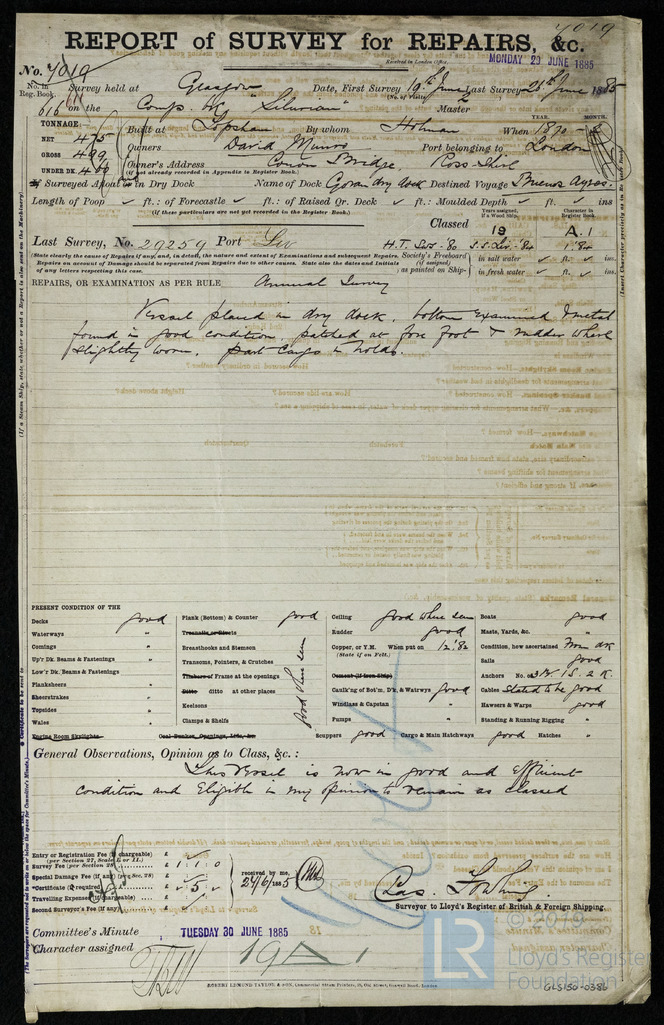 7019
REPORT of SURVEY for REPAIRS, &c.
Received in London Office
MONDAY 29 JUNE 1885
No. 7019
No. in Reg. Book.
Survey held at Glasgow Date, First Survey 19th June Last Survey 26th June 1885
(No. of Visits) 2
616 on the Comp. Bk "Silurian" Master
TONNAGE: YEAR. MONTH.
NET 475
GROSS 499
UNDER DK. 460
Built at Topsham By whom Holman When 1870
Owners David Munro Port belonging to London
Owner's Address Conon Bridge, Ross-shire
(If not already recorded in Appendix to Register Book.)
If Surveyed Afloat or in Dry Dock Name of Dock Govan dry dock Destined Voyage Buenos Ayres.
Length of Poop ✓ ft.: of Forecastle ✓ ft.: of Raised Qr. Deck ✓ ft.: Moulded Depth ✓ ft. ✓ ins
(If these particulars are not yet recorded in the Register Book.)
Classed
Years assigned, if a Wood Ship. Character in Register Book.
19 A.1
Last Survey, No. 29259 Port Liv
(State clearly the cause of Repairs if any, and, in detail, the nature and extent of Examinations and subsequent Repairs. Repairs on account of Damage should be separated from Repairs due to other causes. State also the dates and Initials of any letters respecting this case.
Society's Freeboard (if assigned), as painted on Ship-
in salt water ✓ ft. ✓ ins.
in fresh water ✓ ft. ✓ ins.
REPAIRS, OR EXAMINATION AS PER RULE Annual Survey
Vessel placed in dry dock. bottom Examined & metal
found in good condition, patched at fore foot & rudder where
slightly worn. part Cargo in holds.
PRESENT CONDITION OF THE
Decks good
Waterways "
Comings "
Up'r Dk. Beams & Fastenings "
Low'r Dk. Beams & Fastenings "
Planksheers "
Sheerstrakes "
Topsides "
Wales "
Engine Room Skylights
Plank (Bottom) & Counter good
Treenails or Rivets
Breasthooks and Stemson
Transoms, Pointers, & Crutches
Timbers of Frame at the openings
Ditto ditto at other places
Keelsons
Clamps & Shelfs
good where seen
Coal Bunker Openings, Lids, &c.
Ceiling good where seen
Rudder good
Copper, or Y.M. When put on 12.'82
(State if on Felt.)
Cement (if Iron Ship)
Caulk'ng of Bot'm, D'k, & Watrwys good
Windlass & Capstan "
Pumps "
Scuppers good Cargo & Main Hatchways good Hatches "
Boats good
Masts, Yards, &c. "
Condition, how ascertained from dk
Sails good
Anchors No. of 3 B. 1 S. 2 K.
Cables stated to be good
Hawsers & Warps good
Standing & Running Rigging "
General Observations, Opinion as to Class, &c.:
This Vessel is now in good and Efficient
condition and Eligible in my opinion to remain as classed
Entry or Registration Fee (if chargeable) £ ✓
(per Section 27, Scale I. or II.)
Survey Fee (per Section 28) £ 1 : 1 : 0
Special Damage Fee (if any) (per Sec. 28) £
*Certificate (if required) £ ✓ 5 ✓
Travelling Expenses (if chargeable) £
Second Surveyor's Fee (if any) £
received by me,
29/6/1885
Surveyor to Lloyd's Register of British & Foreign Shipping.
Committee's Minute TUESDAY 30 JUNE 1885
Character assigned 19 A 1
ROBERT EDMUND TAYLOR & SON, Commercial Steam Printers, 19, Old Street, Goswell Road, London
© 2019
LR Lloyd's Register Foundation
GLS150-0386